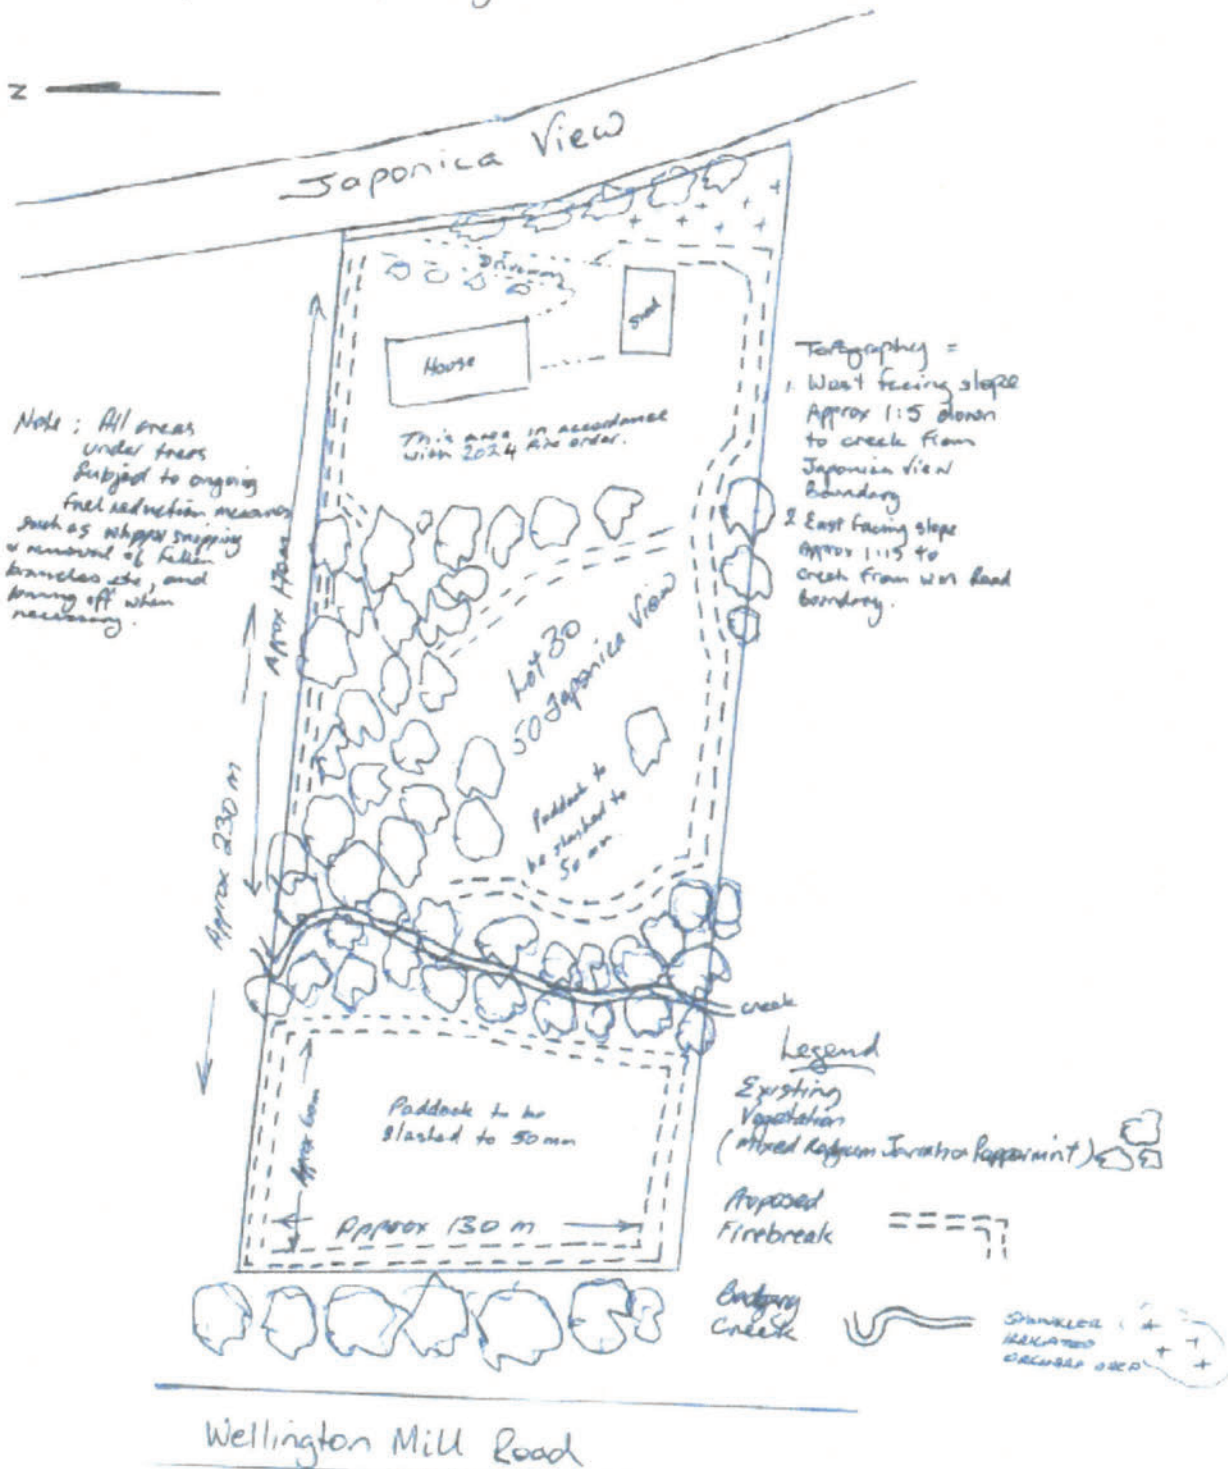 N
Japonica View
Driveway
Shed
House
This area in accordance
with 2024 fire order.
Note : All areas
under trees
Subject to ongoing
fuel reduction measures
such as whipper snipping
& removal of fallen
branches etc, and
burning off when
necessary.
Topography =
1. West facing slope
Approx 1:5 down
to creek from
Japonica View
Boundary
2 East facing slope
Approx 1:15 to
creek from Wm Road
boundary.
Approx 170m
Lot 30
50 Japonica View
Paddock to
be slashed to
50 mm
Approx 230 m
creek
Legend
Existing
Vegetation
(Mixed Redgum Jarrah & Peppermint)
Paddock to be
slashed to 50mm
Approx 60m
Approx 130 m
Proposed
Firebreak
Creek
SPRINKLER
IRRIGATED
ORCHARD AREA
Wellington Mill Road